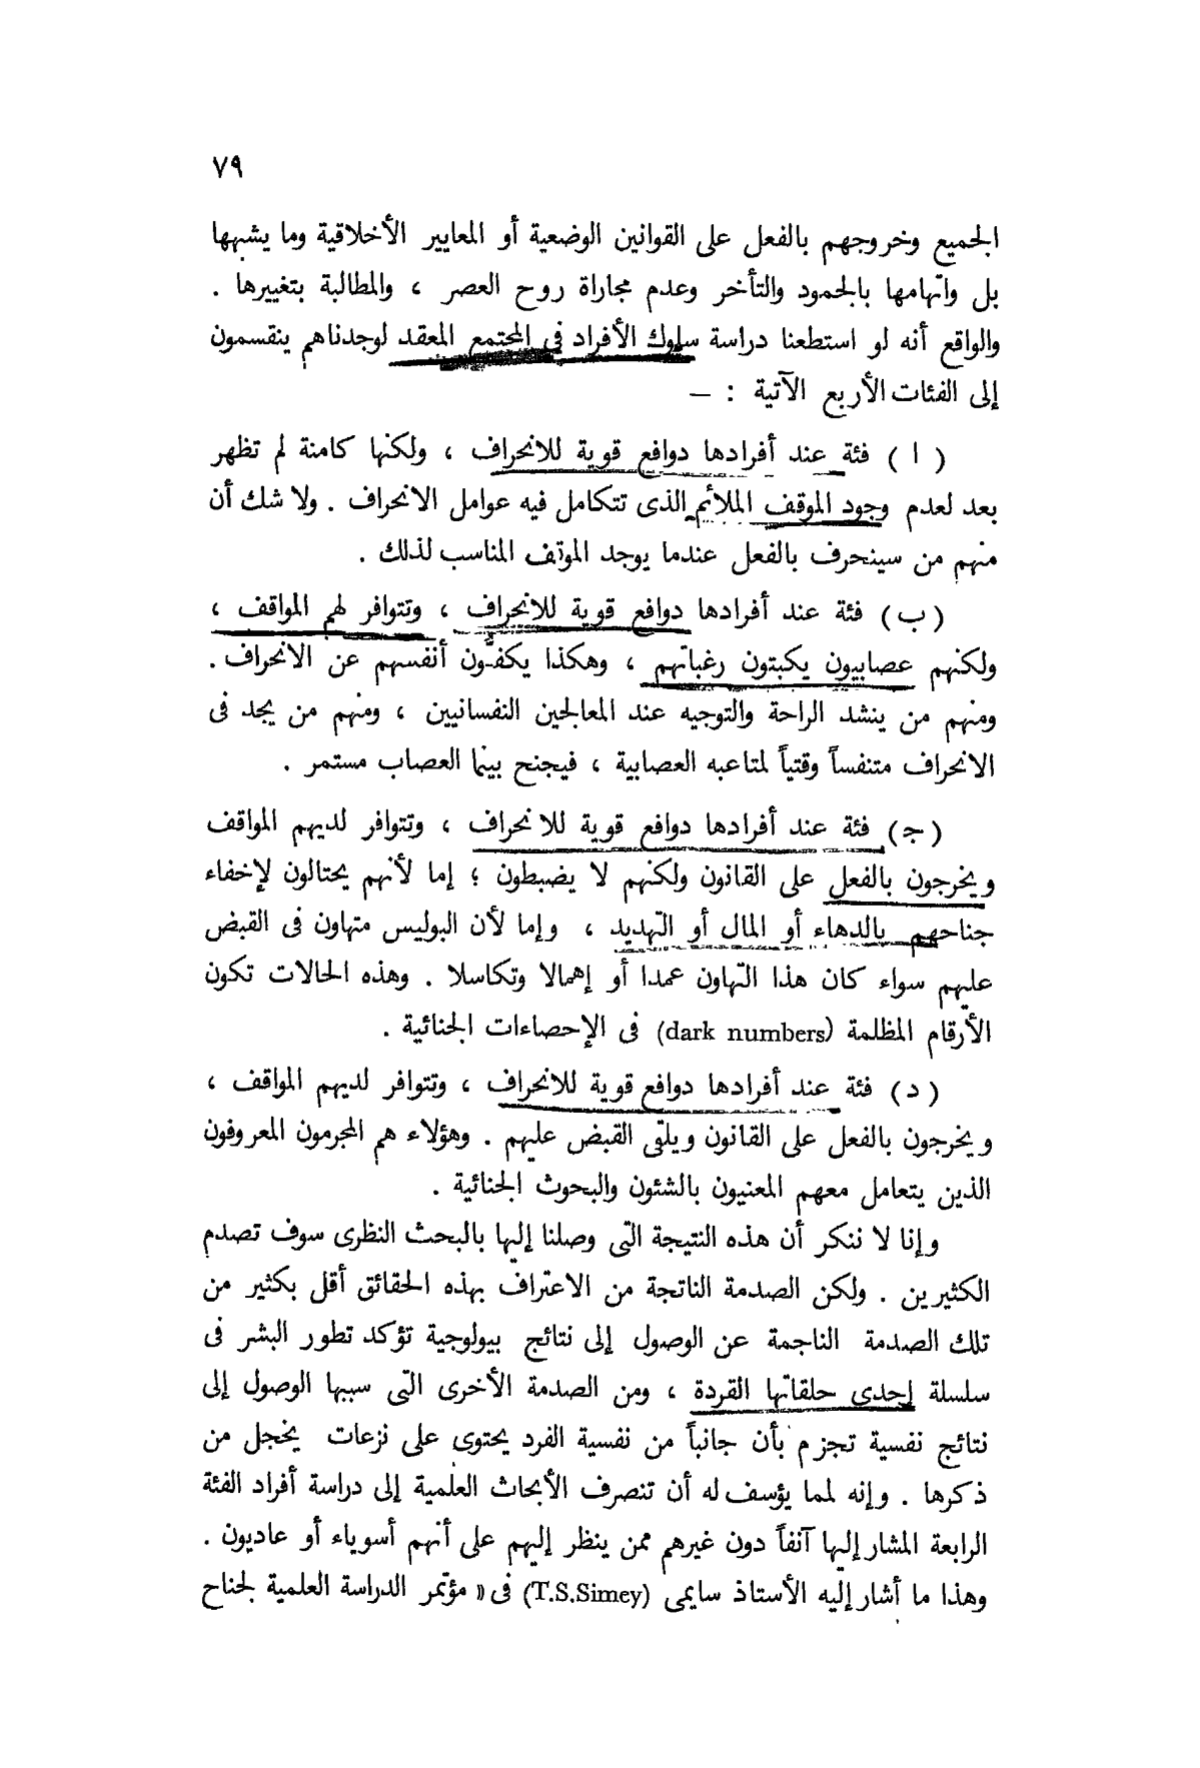 ٧٩
الجميع وخروجهم بالفعل على القوانين الوضعية أو المعايير الأخلاقية وما يشبهها
بل واتهامها بالجمود والتأخر وعدم مجاراة روح العصر ، والمطالبة بتغييرها .
والواقع أنه لو استطعنا دراسة سلوك الأفراد فى المجتمع المعقد لوجدناهم ينقسمون
إلى الفئات الأربع الآتية : —
( ا ) فئة عند أفرادها دوافع قوية للانحراف ، ولكنها كامنة لم تظهر
بعد لعدم وجود الموقف الملائم الذى تتكامل فيه عوامل الانحراف . ولا شك أن
منهم من سينحرف بالفعل عندما يوجد الموقف المناسب لذلك .
(ب) فئة عند أفرادها دوافع قوية للانحراف ، وتتوافر لهم المواقف ،
ولكنهم عصابيون يكبتون رغباتهم ، وهكذا يكفُّون أنفسهم عن الانحراف .
ومنهم من ينشد الراحة والتوجيه عند المعالجين النفسانيين ، ومنهم من يجد فى
الانحراف متنفساً وقتياً لمتاعبه العصابية ، فيجنح بينما العصاب مستمر .
(ج) فئة عند أفرادها دوافع قوية للانحراف ، وتتوافر لديهم المواقف
ويخرجون بالفعل على القانون ولكنهم لا يضبطون ؛ إما لأنهم يحتالون لإخفاء
جناحهم بالدهاء أو المال أو التهديد ، وإما لأن البوليس متهاون فى القبض
عليهم سواء كان هذا التهاون عمدا أو إهمالا وتكاسلا . وهذه الحالات تكون
الأرقام المظلمة (dark numbers) فى الإحصاءات الجنائية .
(د) فئة عند أفرادها دوافع قوية للانحراف ، وتتوافر لديهم المواقف ،
ويخرجون بالفعل على القانون ويلقى القبض عليهم . وهؤلاء هم المجرمون المعروفون
الذين يتعامل معهم المعنيون بالشئون والبحوث الجنائية .
وإنا لا ننكر أن هذه النتيجة التى وصلنا إليها بالبحث النظرى سوف تصدم
الكثيرين . ولكن الصدمة الناتجة من الاعتراف بهذه الحقائق أقل بكثير من
تلك الصدمة الناجمة عن الوصول إلى نتائج بيولوجية تؤكد تطور البشر فى
سلسلة إحدى حلقاتها القردة ، ومن الصدمة الأخرى التى سببها الوصول إلى
نتائج نفسية تجزم بأن جانباً من نفسية الفرد يحتوى على نزعات يخجل من
ذكرها . وإنه لمما يؤسف له أن تنصرف الأبحاث العلمية إلى دراسة أفراد الفئة
الرابعة المشار إليها آنفاً دون غيرهم ممن ينظر إليهم على أنهم أسوياء أو عاديون .
وهذا ما أشار إليه الأستاذ سايمى (T.S.Simey) فى « مؤتمر الدراسة العلمية لجناح